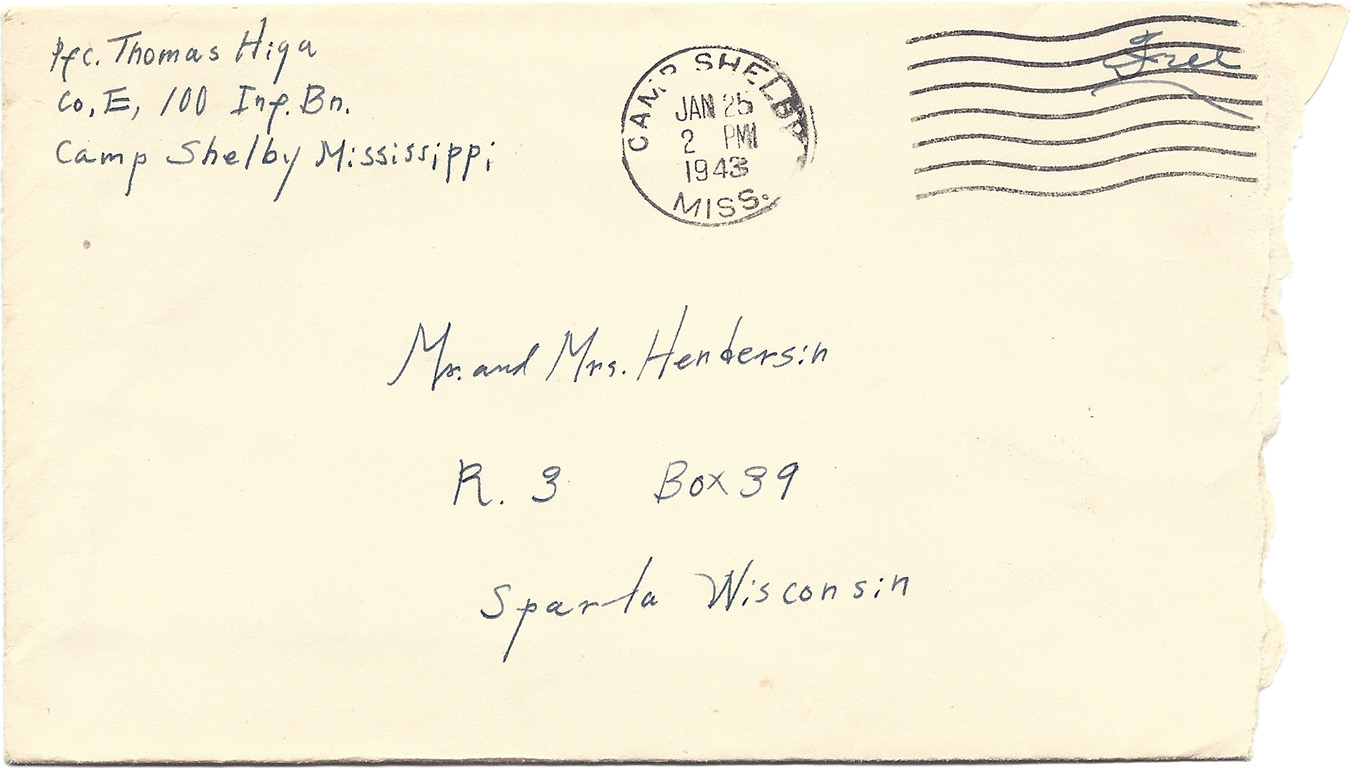 Pfc. Thomas Higa
Co, E, 100 Inf. Bn.
Camp Shelby Mississippi
CAMP SHELBY
JAN 25
2 PM
1943
MISS.
Free
Mr. and Mrs. Hendersin
R. 3 Box 39
Sparta Wisconsin